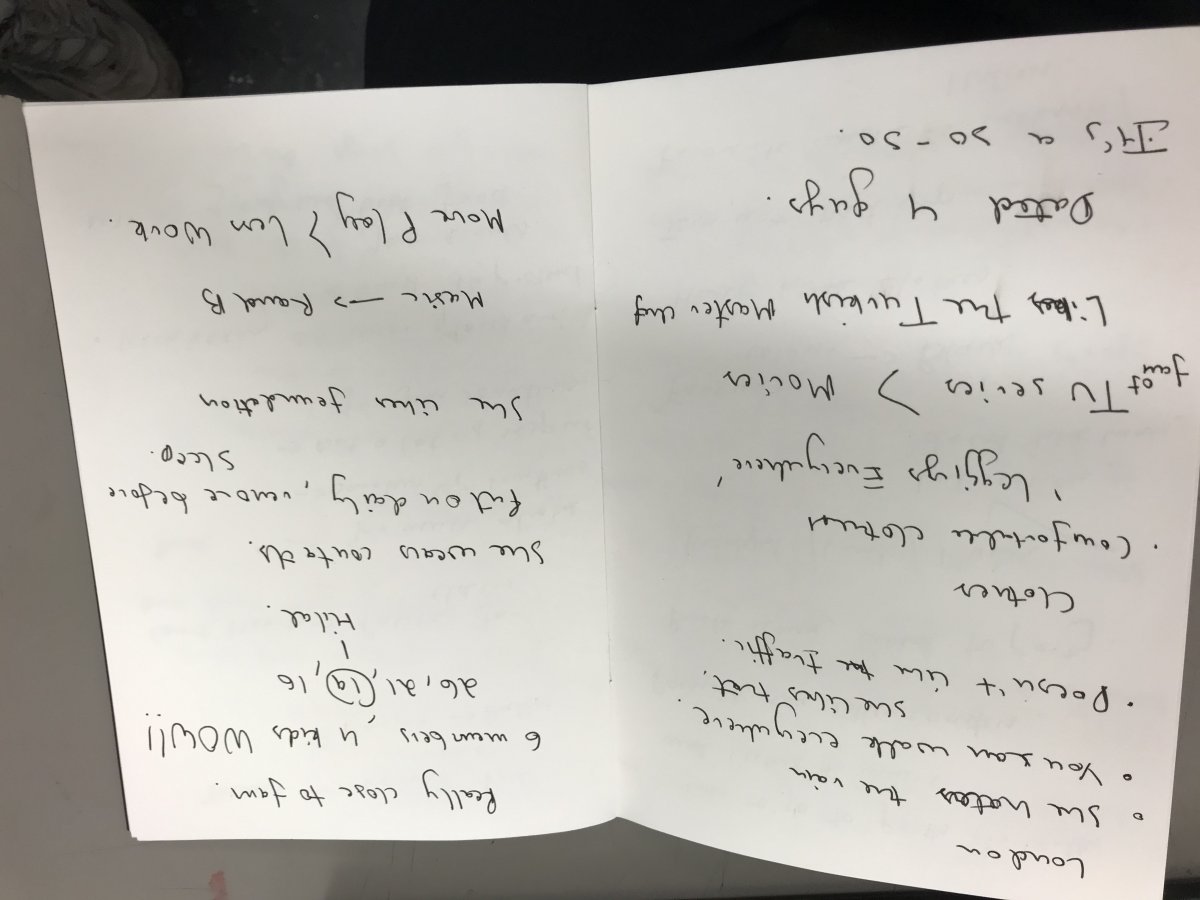 London
° She hates the rain
° You can walk everywhere.
She likes that.
• Doesn't like the traffic.
Clothes
• Comfortable clothes
'Leggings Everywhere'
TV series > Movies
Likes the Turkish
Dated 4 guys.
It's a 50-50.
Really close to fam.
6 members, 4 kids WOW!!
26, 21, 19, 16
Hilal.
She wears contacts.
Put on daily, remove before
sleep.
She likes foundation
Music → R and B
More Play > Less Work.